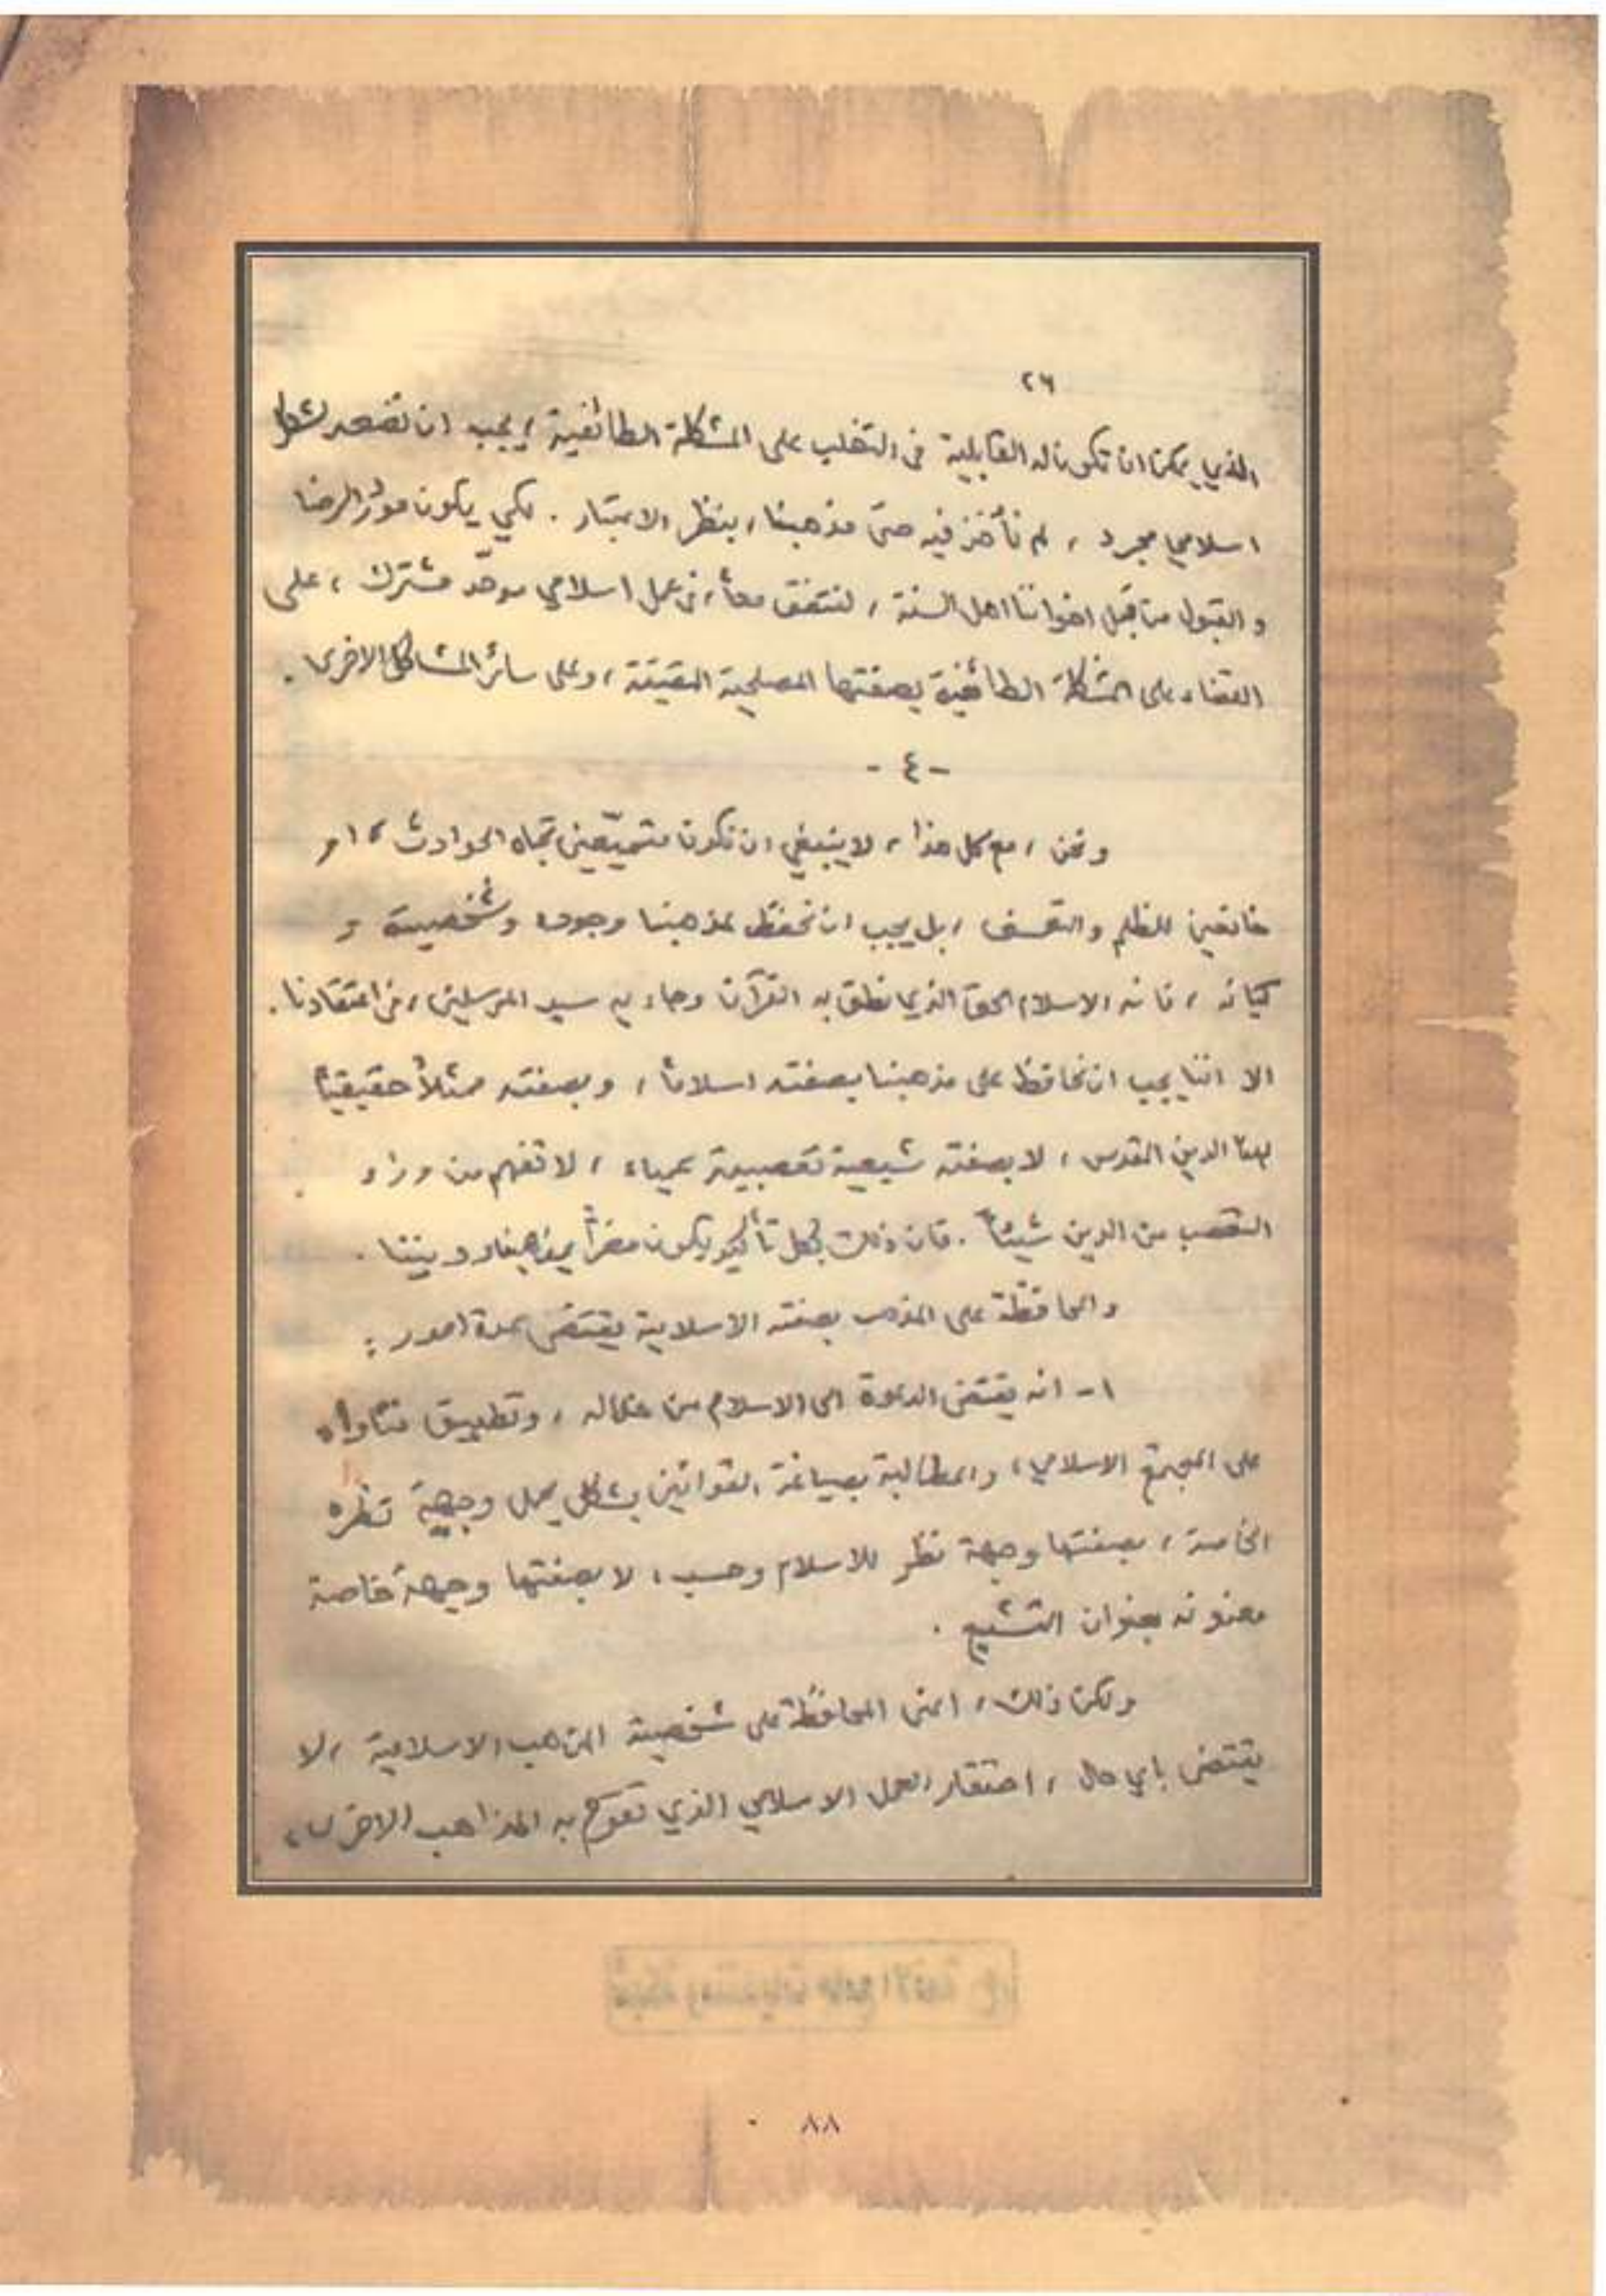 ٢٦
الذي يمكن ان تكون له القابلية في التغلب على المشكلة الطائفية ، يجب ان بشكل
اسلامي مجرد ، لم نأخذ فيه حتى مذهبنا ، بنظر الاعتبار . لكي يكون مورد الرضا
و القبول من قبل اخواننا اهل السنة ، لنتفق معاً ، في عمل اسلامي موحّد مشترك ، على
القضاء على المشكلة الطائفية بصفتها المصلحية المقيتة ، وعلى سائر المشاكل الاخرى .
- ٤ -
ونحن ، مع كل هذا ، لا ينبغي ان نكون متميّعين تجاه الحوادث ، او
خانعين للظلم والتعسف ، بل يجب ان نحفظ لمذهبنا وجوده وشخصيته و
كيانه ، فانه الاسلام الحق الذي نطق به القرآن وجاء به سيد المرسلين ، في اعتقادنا .
الا اننا يجب ان نحافظ على مذهبنا بصفته اسلاماً ، وبصفته ممثلاً حقيقياً
لهذا الدين المقدس ، لا بصفته شيعية تعصبية عمياء ، لا تفهم من وراء
التعصب من الدين شيئاً . فان ذلك بكل تأكيد يكون مضراً بمذهبنا وديننا .
والمحافظة على المذهب بصفته الاسلامية يقتضي عدة امور :
١ - انه يقتضي الدعوة الى الاسلام من خلاله ، وتطبيق فتاواه
على المجتمع الاسلامي ، والمطالبة بصياغة القوانين بشكل يحمل وجهة نظره
الخاصة ، بصفتها وجهة نظر للاسلام وحسب ، لا بصفتها وجهة خاصة
معنونة بعنوان التشيع .
ولكن ذلك ، اعني المحافظة على شخصية المذهب الاسلامية ، لا
يقتضي باي حال ، احتقار العمل الاسلامي الذي تقوم به المذاهب الاخرى ،
٨٨